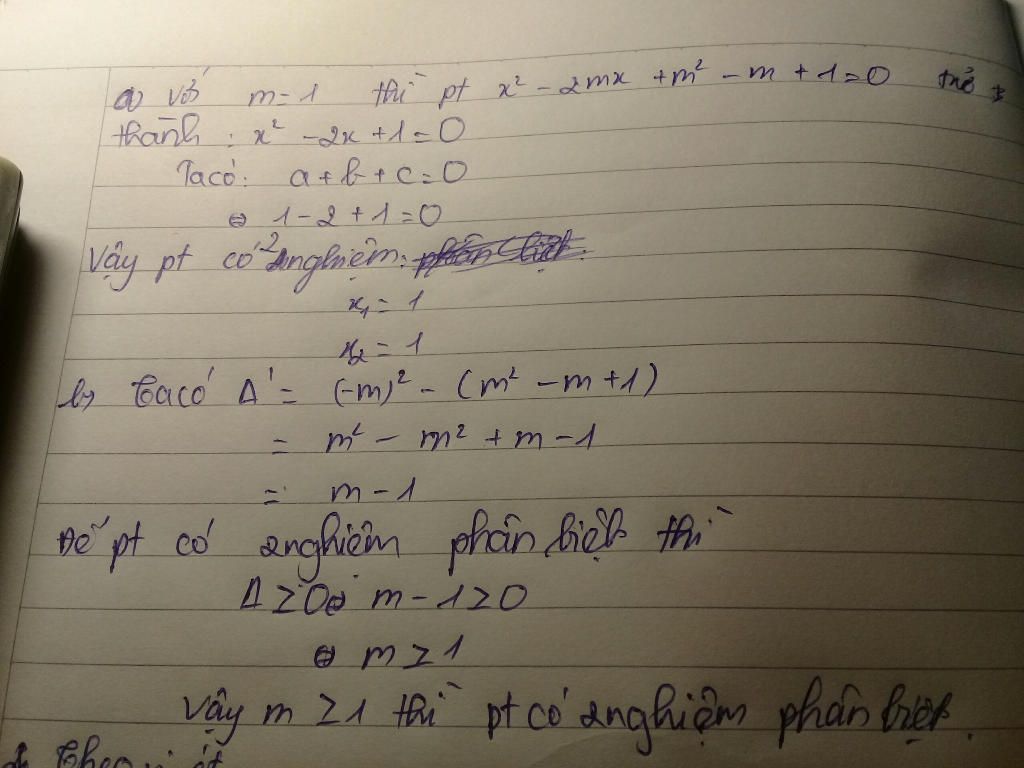 a) Với m = 1 thì pt x² - 2mx + m² - m + 1 = 0 trở
thành: x² - 2x + 1 = 0
Ta có: a + b + c = 0
⇔ 1 - 2 + 1 = 0
Vậy pt có 2 nghiệm:
x₁ = 1
x₂ = 1
b, Ta có Δ' = (-m)² - (m² - m + 1)
= m² - m² + m - 1
= m - 1
Để pt có 2 nghiệm phân biệt thì
Δ ≥ 0 ⇔ m - 1 ≥ 0
⇔ m ≥ 1
Vậy m ≥ 1 thì pt có 2 nghiệm phân biệt.
Theo